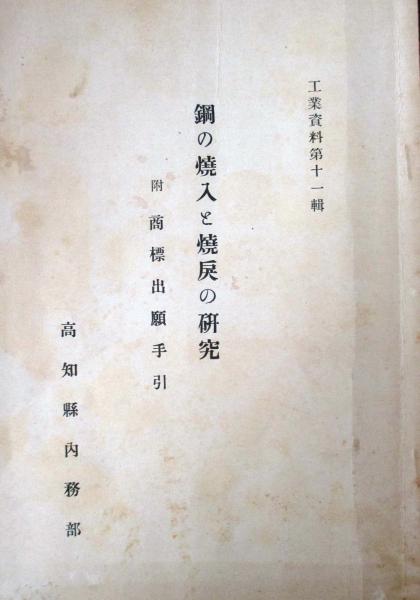 工業資料第十一輯
鋼の燒入と燒戻の硏究
附 商標出願手引
高知縣內務部